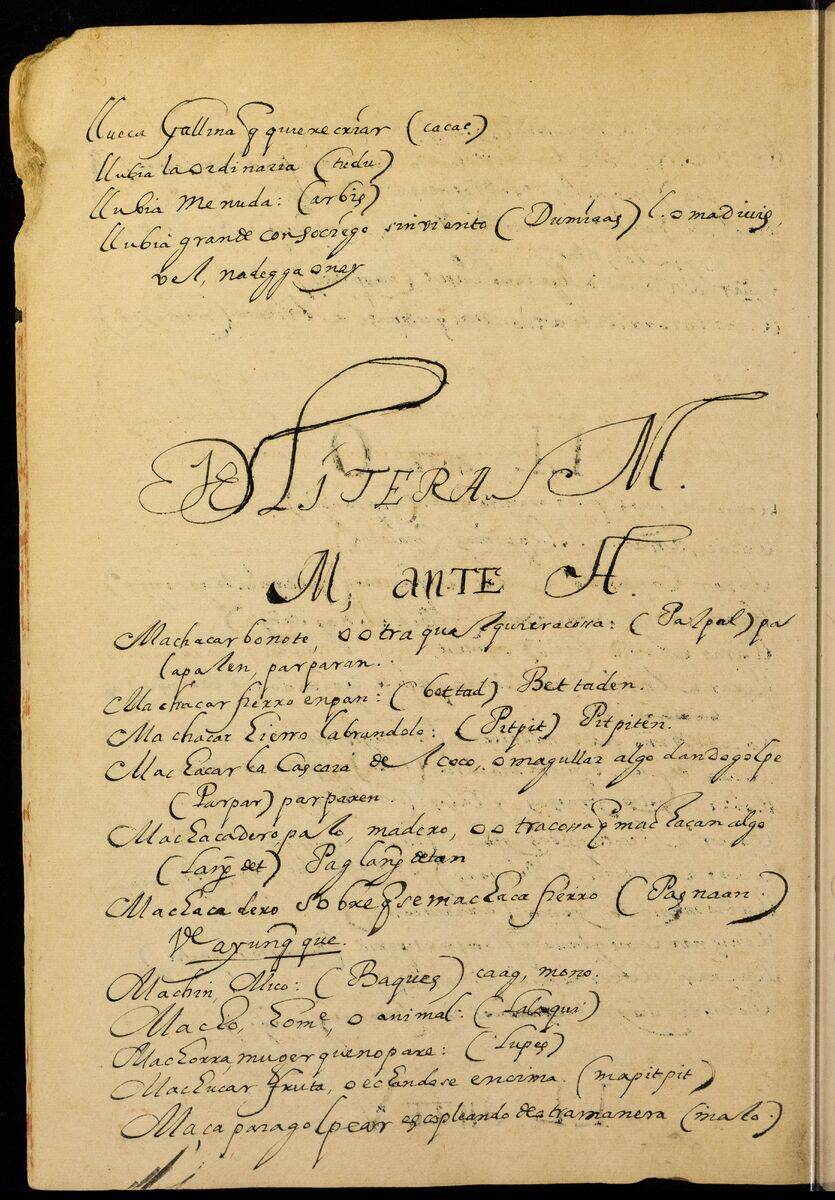 llueca Gallina q̃ quiere criar (cacac.)
llubia la ordinaria (tudu.)
llubia Menuda: (arbis)
llubia grande con sociego sin viento (Dumigas) l. omadiuis,
vel, nadegga oney
De Litera. M.
M, ante A.
Machacar bonote, o otra qualquiera cossa: (Palpal) pa
lapalen, parparan.
Machacar fierro en pan: (bettad) Bettaden.
Machacar hierro labrandolo: (Pitpit) Pitpitèn.
Machacar la Cascara del coco, o magullar algo dando golpe
(Parpar) parparen.
Machacadero, palo, madero, o otra cossa q̃ machacan algo
(Lang̃det) Paglang̃detan
Machacadero sobre q̃ se machaca fierro (Pasnaan.)
Ve ayunq̃que.
Machin, Mico: (Baques) caag, mono.
Macho, home, o animal: (Lalaqui)
Machorra, muger que no pare: (Lupes)
Machucar fruta, o echandose encima (mapitpit)
Maça para golpear escopleando de otra manera (malo.)